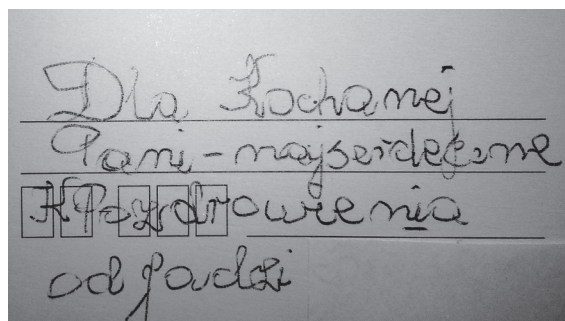 Dla Kochanej
Pani - najserdeczne
Pozdrowienia
od Jadzi